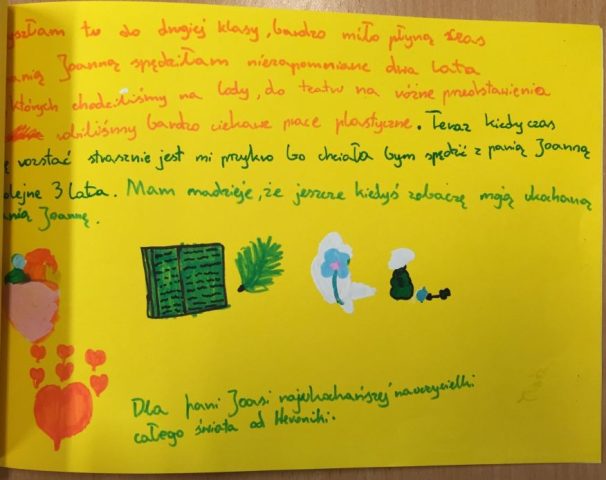 yszłam tu do drugiej klasy, bardzo miło płyną czas
panią Joanną spędziłam niezapomniane dwa lata
których chodziliśmy na lody, do teatru na różne przedstawienia
robiliśmy bardzo ciekawe prace plastyczne. Teraz kiedy czas
ę rozstać strasznie jest mi przykro bo chciała bym spędzić z panią Joanną
olejne 3 lata. Mam nadzieje, że jeszcze kiedyś zobaczę moją ukochaną
anią Joannę.
Dla pani Joasi najukochańszej nauczycielki
całego świata od Weroniki.